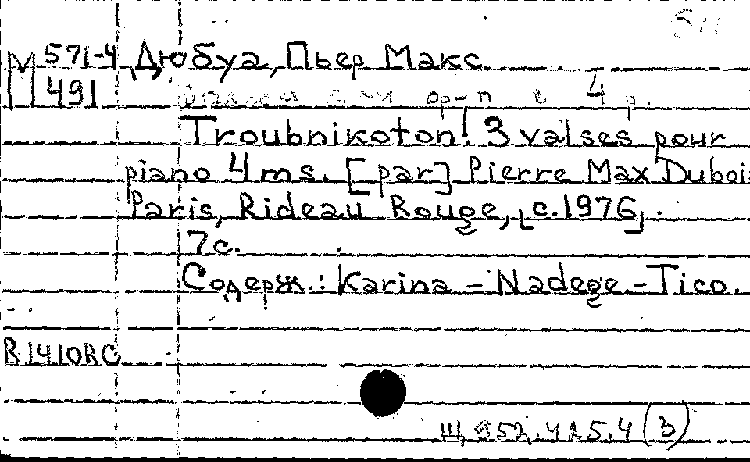 М 571-4 Дюбуа, Пьер Макс
491
4 р.
Troubnikoton! 3 valses pour
piano 4 ms. [par] Pierre Max Dubois
Paris, Rideau Rouge, [c.1976].
7 с.
Содерж.: Karina - Nadege - Tico.
R 1410RC
Ш, 952.425.4 (3)